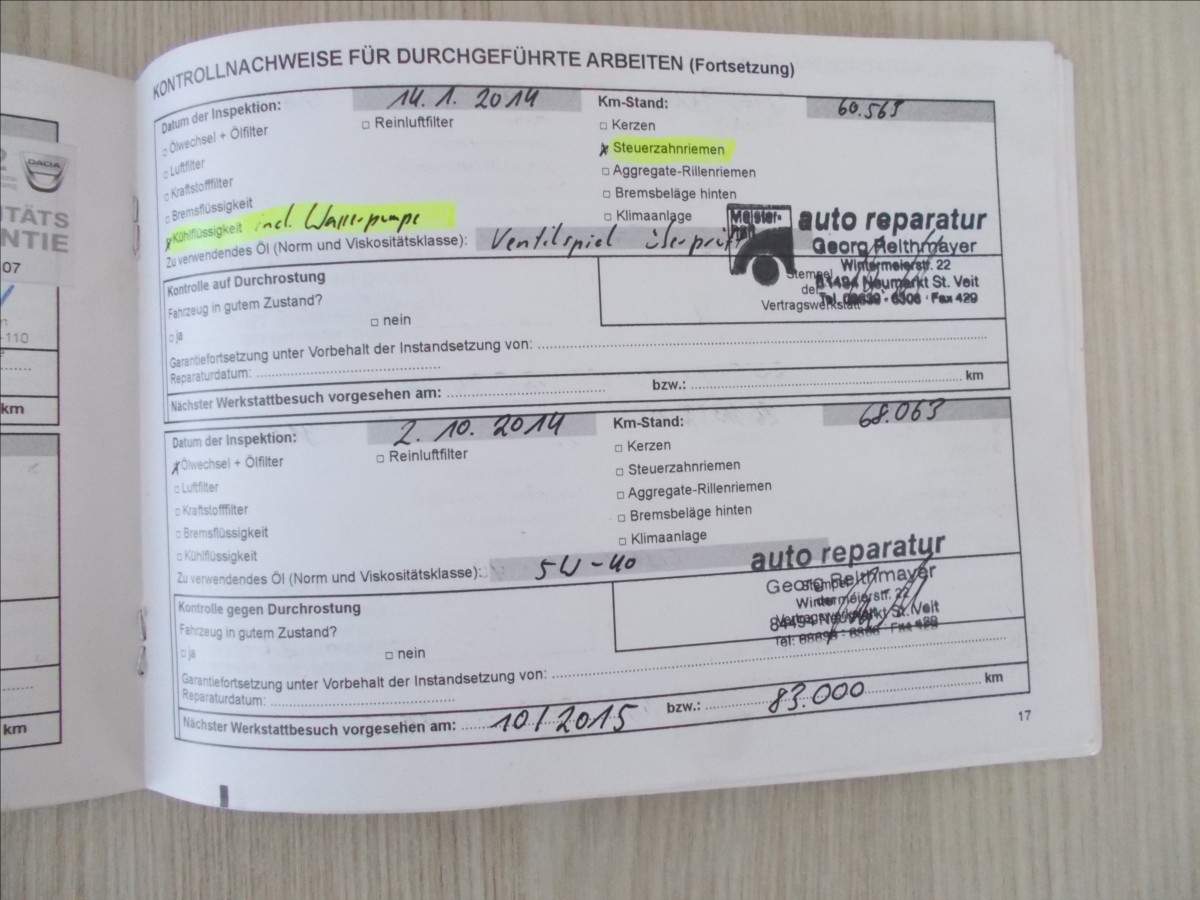 KONTROLLNACHWEISE FÜR DURCHGEFÜHRTE ARBEITEN (Fortsetzung)
Datum der Inspektion: 14.1.2014 Km-Stand: 60.563
□ Ölwechsel + Ölfilter □ Reinluftfilter □ Kerzen
□ Luftfilter x Steuerzahnriemen
□ Kraftstofffilter □ Aggregate-Rillenriemen
□ Bremsflüssigkeit □ Bremsbeläge hinten
x Kühlflüssigkeit incl. Wasserpumpe □ Klimaanlage
Zu verwendendes Öl (Norm und Viskositätsklasse): Ventilspiel überprüft
Meister-
auto reparatur
Georg Reithmayer
Wintermeierstr. 22
84494 Neumarkt St. Veit
Stempel
der
Vertragswerkstatt
Kontrolle auf Durchrostung
Fahrzeug in gutem Zustand?
□ ja □ nein
Garantiefortsetzung unter Vorbehalt der Instandsetzung von:
Reparaturdatum:
Nächster Werkstattbesuch vorgesehen am: bzw.: km
Datum der Inspektion: 2.10.2014 Km-Stand: 68.063
x Ölwechsel + Ölfilter □ Reinluftfilter □ Kerzen
□ Luftfilter □ Steuerzahnriemen
□ Kraftstofffilter □ Aggregate-Rillenriemen
□ Bremsflüssigkeit □ Bremsbeläge hinten
□ Kühlflüssigkeit □ Klimaanlage
Zu verwendendes Öl (Norm und Viskositätsklasse): 5W-40
auto reparatur
Georg Reithmayer
Wintermeierstr. 22
84494 Neumarkt St. Veit
Stempel
der
Vertragswerkstatt
Kontrolle gegen Durchrostung
Fahrzeug in gutem Zustand?
□ ja □ nein
Garantiefortsetzung unter Vorbehalt der Instandsetzung von:
Reparaturdatum:
Nächster Werkstattbesuch vorgesehen am: 10/2015 bzw.: 83.000 km
17
DACIA
07
-110
km
km